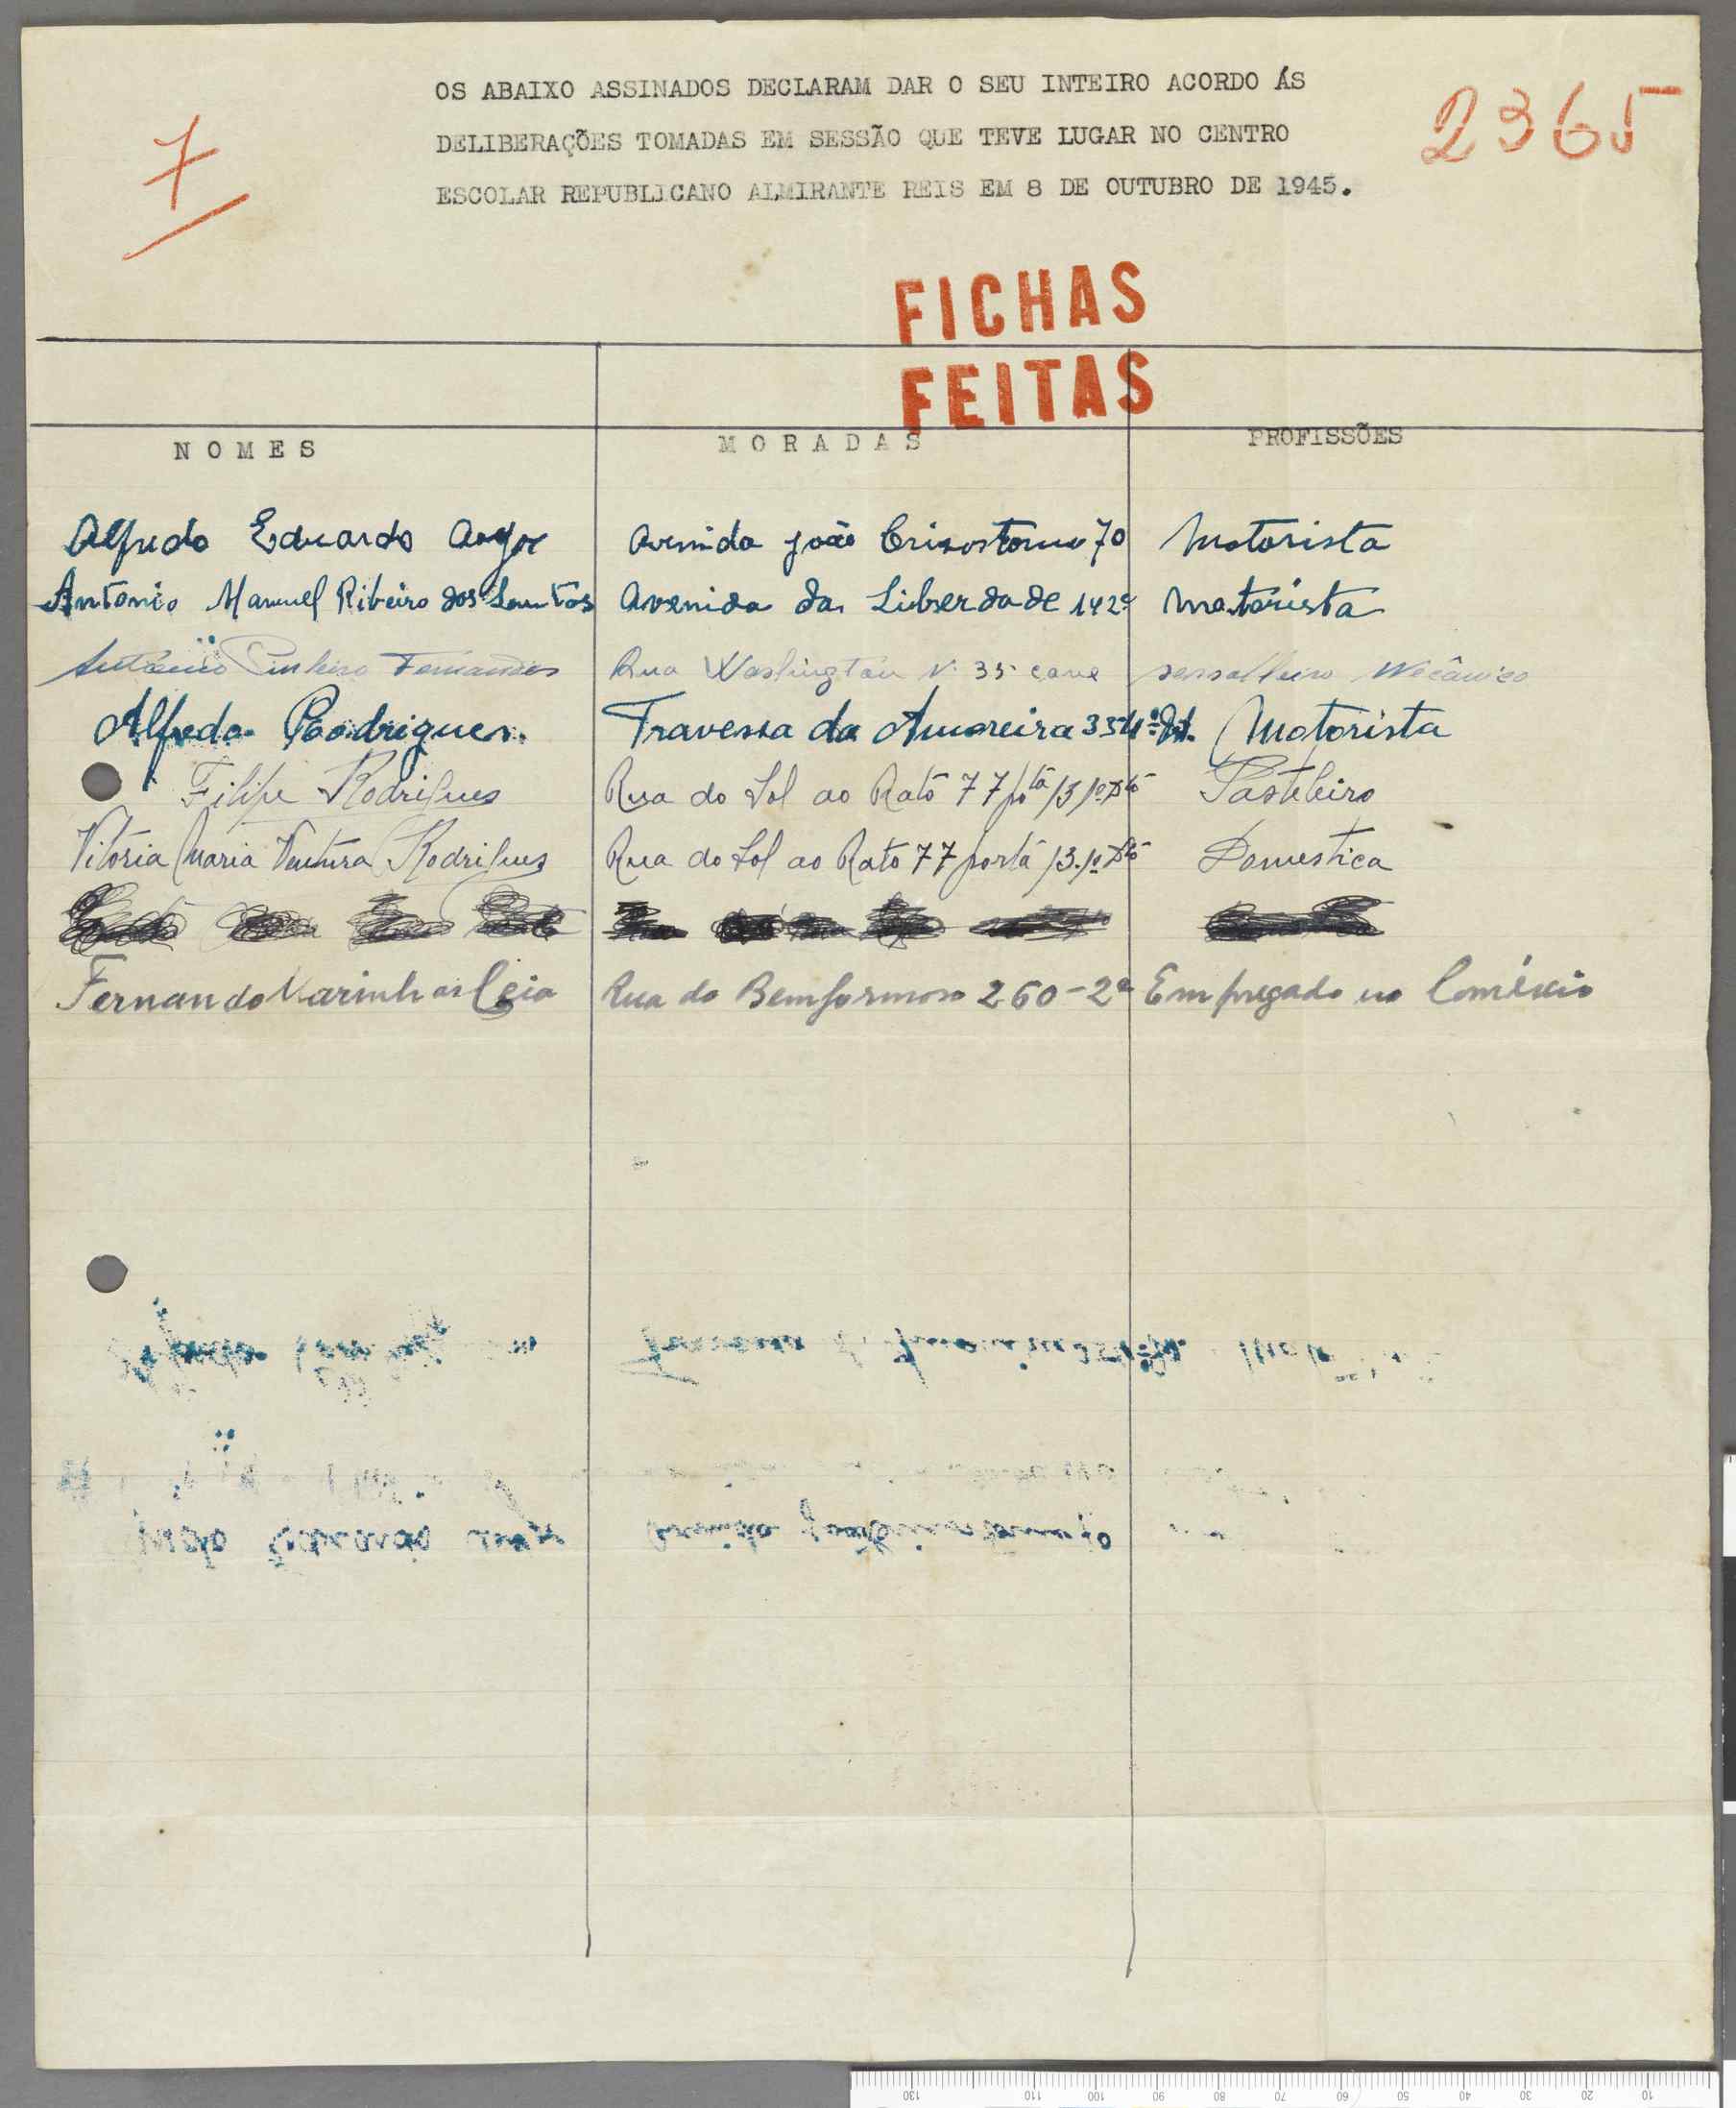 OS ABAIXO ASSINADOS DECLARAM DAR O SEU INTEIRO ACORDO ÁS
2365
7
DELIBERAÇÕES TOMADAS EM SESSÃO QUE TEVE LUGAR NO CENTRO
ESCOLAR REPUBLICANO ALMIRANTE REIS EM 8 DE OUTUBRO DE 1945.
FICHAS
FEITAS
NOMES MORADAS PROFISSÕES
Alfredo Eduardo Avenida João Crisostomo 70 Motorista
Antonio Manuel Ribeiro dos Santos Avenida da Liberdade 142 Motorista
António Pinheiro Fernandes Rua Washington N. 35 cave serralheiro Mecânico
Alfredo Rodrigues. Travessa da Amoreira 35 Motorista
Filipe Rodrigues Rua do Sol ao Rato 77 Pasteleiro
Vitoria Maria Ventura Rodrigues Rua do Sol ao Rato 77 porta 13 Domestica
Fernando Marinhas Ceia Rua do Bemformoso 260-2º Empregado no Comércio